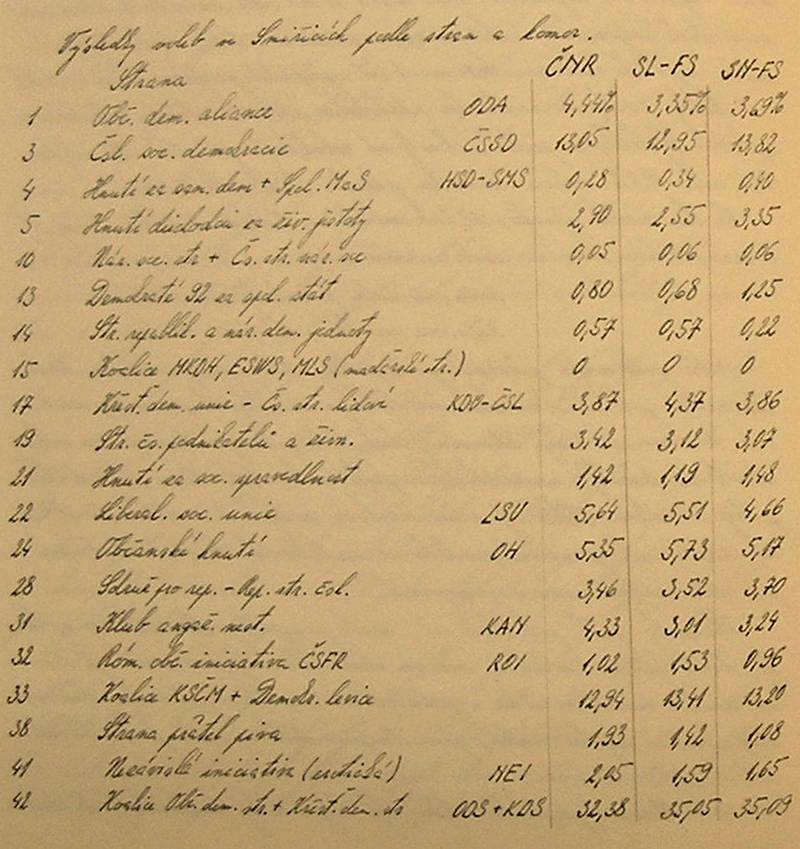 Výsledky voleb ve Smiřicích podle stran a komor.
Strana ČNR SL-FS SN-FS
1 Obč. dem. aliance ODA 4,44% 3,35% 3,69%
3 Čsl. soc. demokracie ČSSD 13,05 12,95 13,82
4 Hnutí za sam. dem + Spol. MaS HSD-SMS 0,28 0,34 0,40
5 Hnutí důchodců za živ. jistoty 2,90 2,55 3,35
10 Nár. soc. str + Čs. str. nár. soc 0,05 0,06 0,06
13 Demokraté 92 za spol. stát 0,80 0,68 1,25
14 Str. republik. a nár. dem. jednoty 0,57 0,57 0,22
15 Koalice MKDH, ESWS, MLS (maďarské str.) 0 0 0
17 Křest. dem. unie - Čs. str. lidová KDU-ČSL 3,87 4,37 3,86
19 Str. čs. podnikatelů a živn. 3,42 3,12 3,07
21 Hnutí za soc. spravedlnost 1,42 1,19 1,48
22 Liberal. soc. unie LSU 5,64 5,51 4,66
24 Občanské hnutí OH 5,35 5,73 5,17
28 Sdruž pro rep. - Rep. str. čsl. 3,46 3,52 3,70
31 Klub angaž. nest. KAN 4,33 3,01 3,24
32 Róm. obč. iniciativa ČSFR ROI 1,02 1,53 0,96
33 Koalice KSČM + Demokr. levice 12,94 13,41 13,20
38 Strana přátel piva 1,93 1,42 1,08
41 Nezávislá iniciativa (erotická) NEI 2,05 1,59 1,65
42 Koalice Obč. dem. str. + Křest. dem. str ODS+KDS 32,38 35,05 35,09